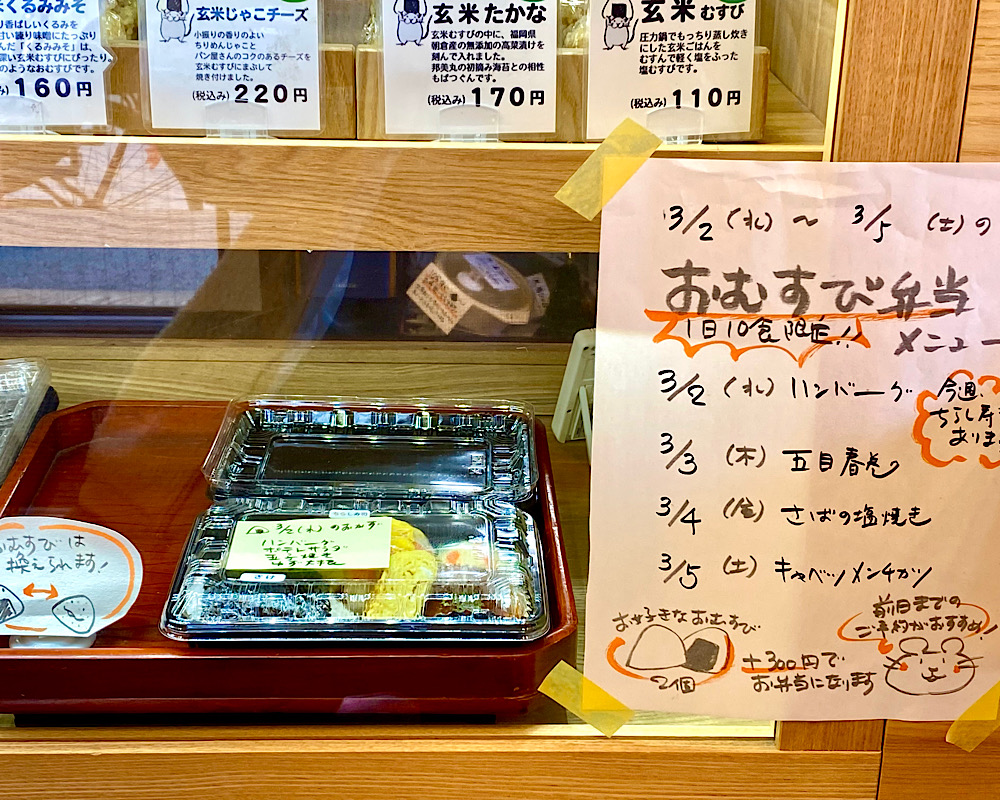 くるみみそ
り香ばしいくるみを
甘い練り味噌にたっぷり
んだ「くるみみそ」は、
深い玄米むすびにぴったり。
のようなおむすびです。
160円
玄米じゃこチーズ
小振りの香りのよい
ちりめんじゃこと
パン屋さんのコクのあるチーズを
玄米むすびにまぶして
焼き付けました。
(税込み) 220円
玄米たかな
玄米むすびの中に、福岡県
朝倉産の無添加の高菜漬けを
刻んで入れました。
邦美丸の初摘み海苔との相性
もばつぐんです。
(税込み) 170円
玄米むすび
圧力鍋でもっちり蒸し炊き
にした玄米ごはんを
むすんで軽く塩をふった
塩むすびです。
(税込み) 110円
3/2 (水) ～ 3/5 (土)の
おむすび弁当
1日10食限定!!
メニュー
3/2 (水) ハンバーグ
3/3 (木) 五目春巻
3/4 (金) さばの塩焼き
3/5 (土) キャベツメンチカツ
今週、
ちらし寿
あります
お好きなおむすび
2個
+300円で
お弁当になります
前日までの
ご予約がおすすめ!
3/2(水)のおかず
ハンバーグ
ポテトサラダ
おむすびは
換えられます!